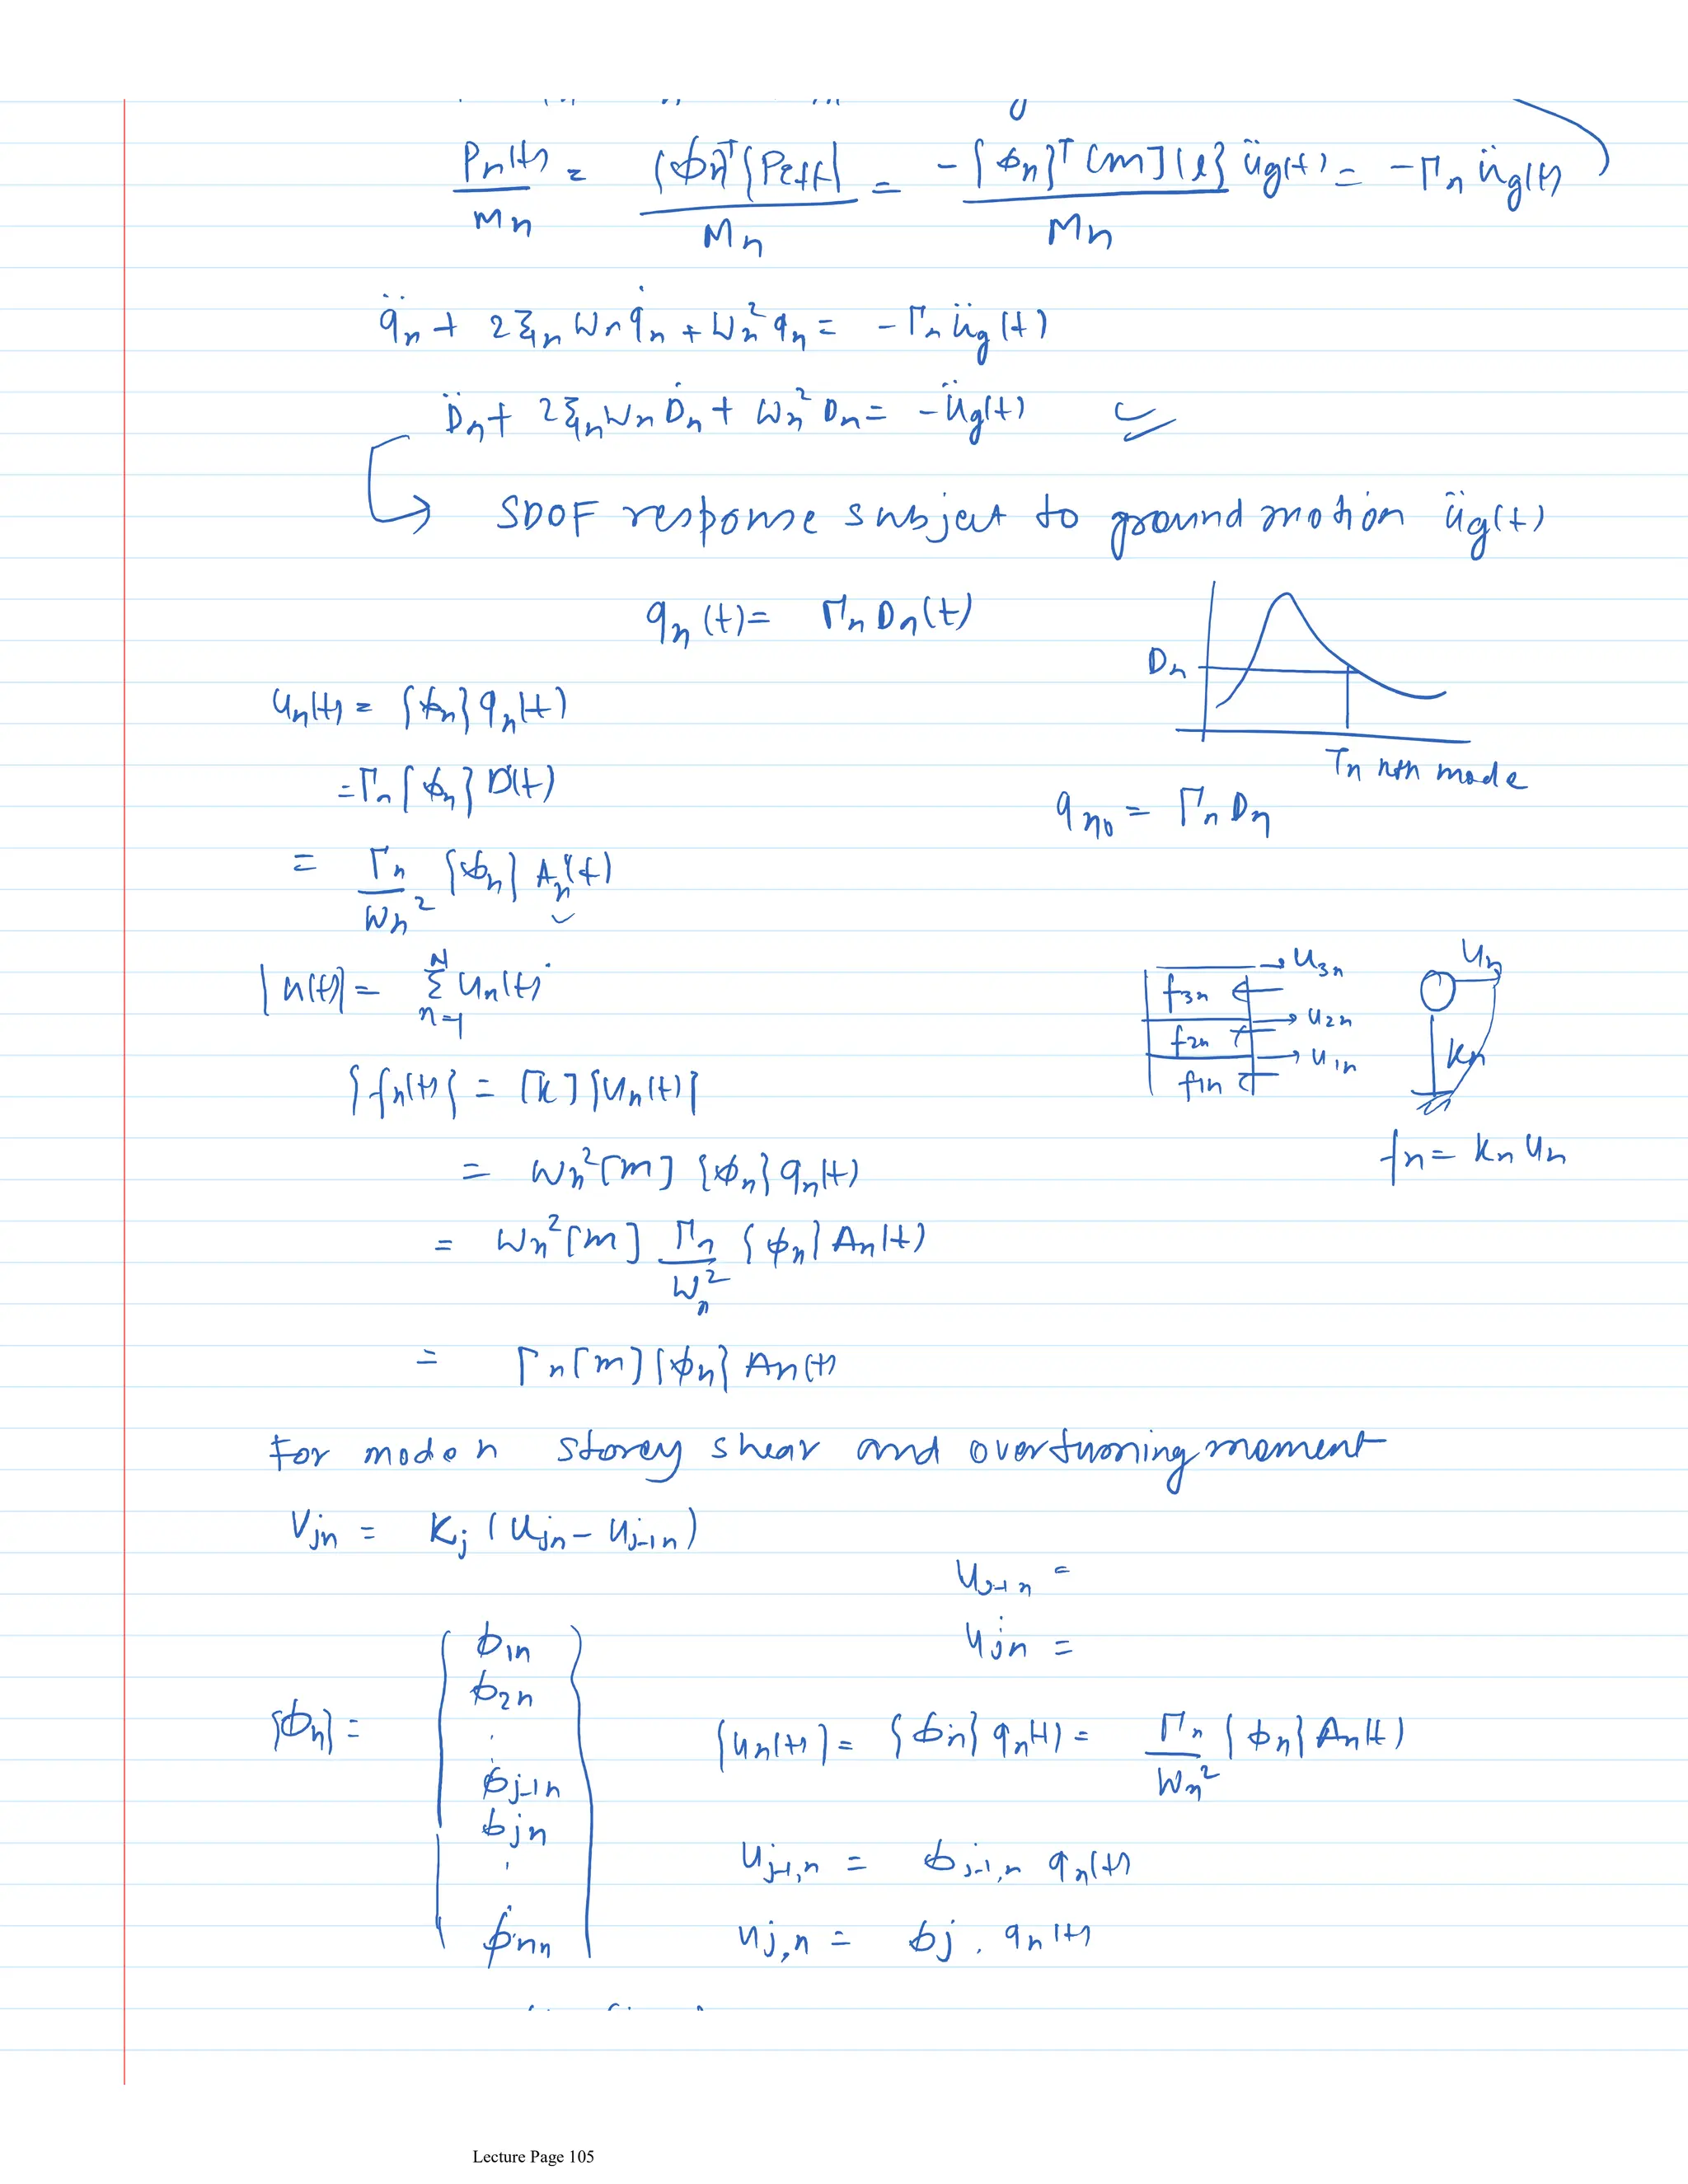 Pn(t)/Mn = {ϕn}ᵀ{Peff}/Mn = -{ϕn}ᵀ[m]{l}/Mn üg(t) = -Γn üg(t)
q̈n + 2ξn ωn q̇n + ωn² qn = -Γn üg(t)
D̈n + 2ξn ωn Ḋn + ωn² Dn = -üg(t)
SDOF response subject to ground motion üg(t)
qn(t) = Γn Dn(t)
Dn
Tn nth mode
qno = Γn Dn
un(t) = {ϕn} qn(t)
= Γn {ϕn} D(t)
= Γn/ωn² {ϕn} An(t)
{u(t)} = Σ_{n=1}^{N} un(t)
f3n u3n
f2n u2n
f1n u1n
un
kn
fn = kn un
{fn(t)} = [k]{un(t)}
= ωn² [m] {ϕn} qn(t)
= ωn² [m] Γn/ωn² {ϕn} An(t)
= Γn [m] {ϕn} An(t)
For mode n storey shear and overturning moment
Vjn = Kj (ujn - uj-1n)
uj-1n =
ujn =
{ϕn} =
ϕ1n
ϕ2n
.
.
ϕj-1n
ϕjn
.
.
ϕnn
{un(t)} = {ϕn} qn(t) = Γn/ωn² {ϕn} An(t)
uj-1,n = ϕj-1,n qn(t)
uj,n = ϕj . qn(t)
Lecture Page 105